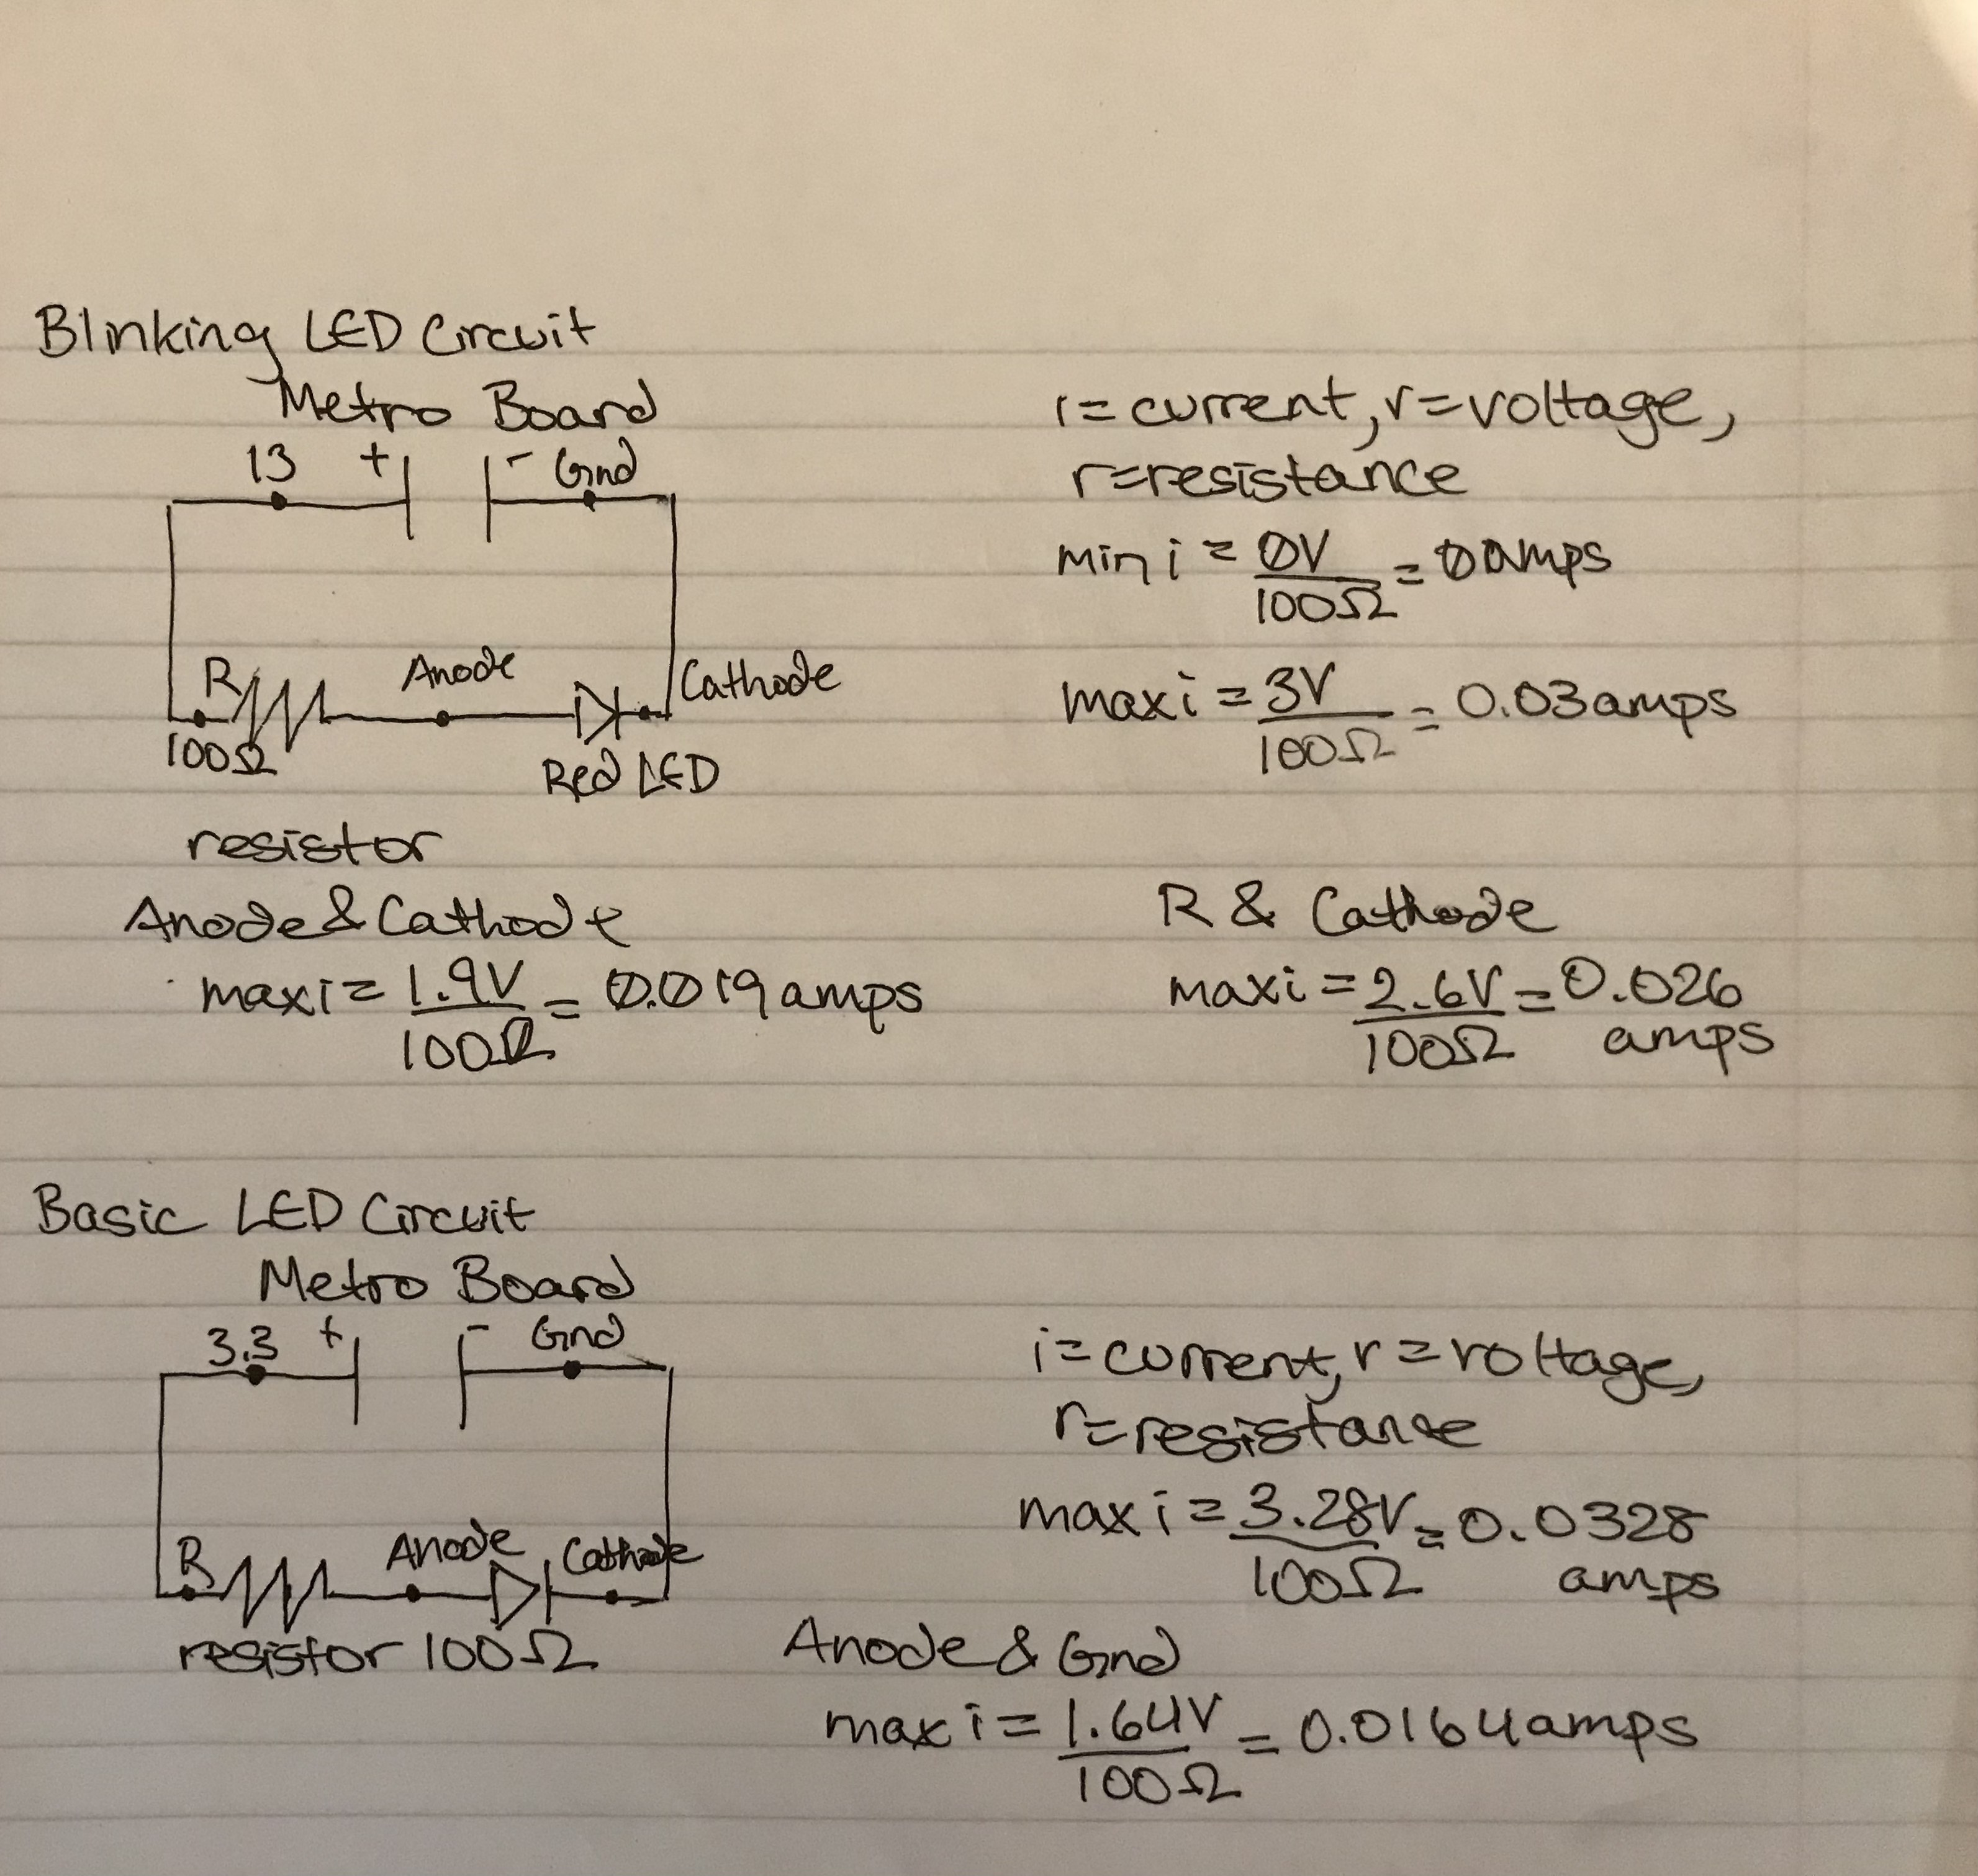 Blinking LED Circuit
Metro Board
13 + - Gnd
R Anode Cathode
100Ω
Red LED
resistor
i=current, r=voltage,
r=resistance
min i = 0V/100Ω = 0 amps
max i = 3V/100Ω = 0.03 amps
Anode & Cathode
max i = 1.9V/100Ω = 0.019 amps
R & Cathode
max i = 2.6V/100Ω = 0.026
amps
Basic LED Circuit
Metro Board
3.3 + - Gnd
R Anode Cathode
resistor 100Ω
i=current, r=voltage,
r=resistance
max i = 3.28V/100Ω = 0.0328
amps
Anode & Gnd
max i = 1.64V/100Ω = 0.0164 amps